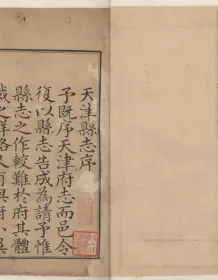 天津縣志序
予既序天津府志而邑令
復以縣志告成為請予惟
縣志之作較難於府其體
裁之詳畧又有與府小異